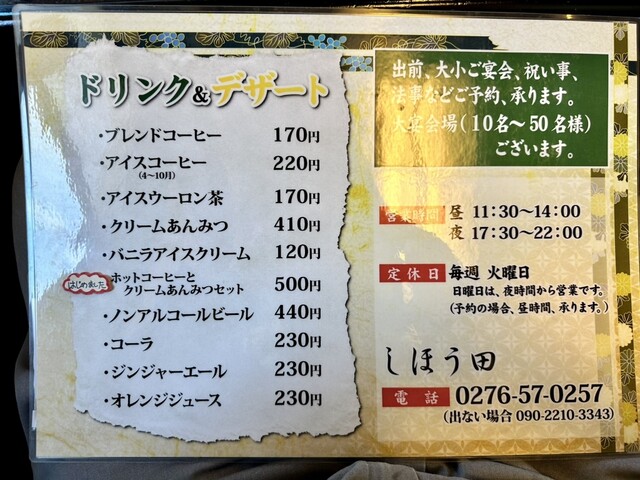 ドリンク&デザート
・ブレンドコーヒー 170円
・アイスコーヒー 220円
(4～10月)
・アイスウーロン茶 170円
・クリームあんみつ 410円
・バニラアイスクリーム 120円
はじめました
ホットコーヒーと
クリームあんみつセット 500円
・ノンアルコールビール 440円
・コーラ 230円
・ジンジャーエール 230円
・オレンジジュース 230円
出前、大小ご宴会、祝い事、
法事などご予約、承ります。
大宴会場(10名～50名様)
ございます。
営業時間 昼 11:30～14:00
夜 17:30～22:00
定休日 毎週 火曜日
日曜日は、夜時間から営業です。
(予約の場合、昼時間、承ります。)
しほう田
電話 0276-57-0257
(出ない場合 090-2210-3343)